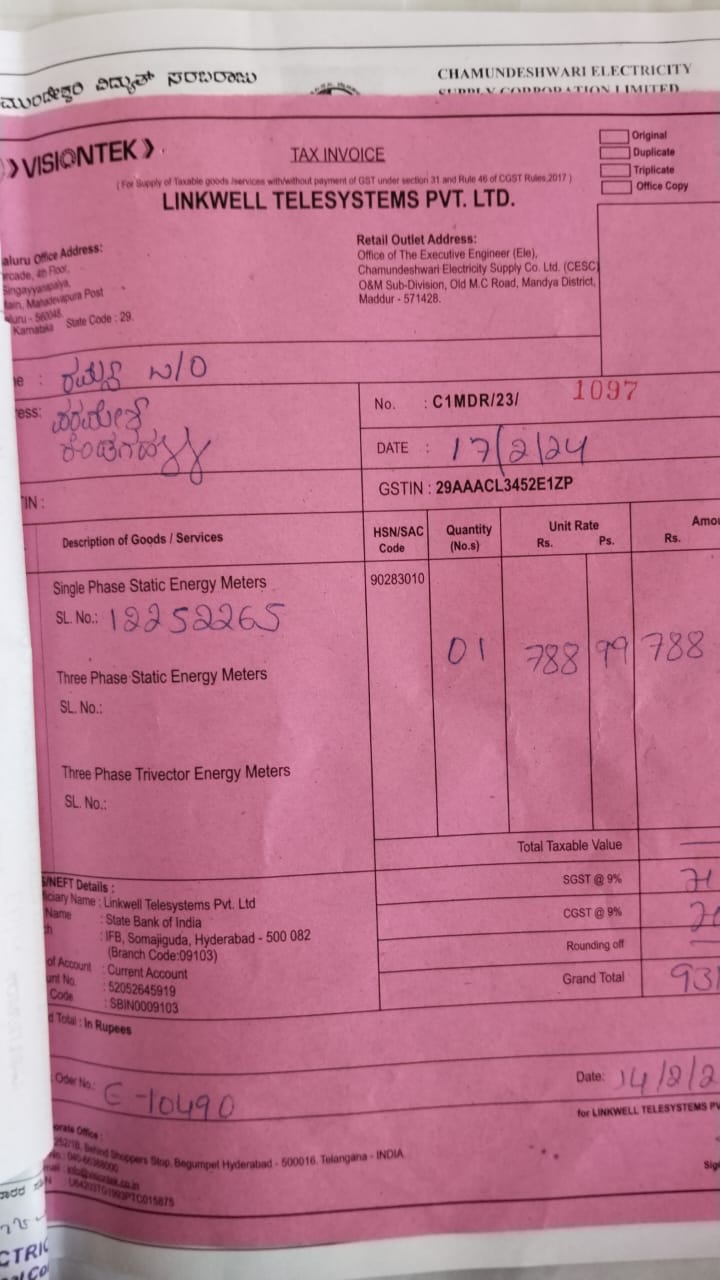 ವಿದ್ಯುತ್ ಸರಬರಾಜು
CHAMUNDESHWARI ELECTRICITY
SUPPLY CORPORATION LIMITED
VISIONTEK
TAX INVOICE
Original
Duplicate
Triplicate
Office Copy
( For Supply of Taxable goods /services with/without payment of GST under section 31 and Rule 46 of CGST Rules,2017 )
LINKWELL TELESYSTEMS PVT. LTD.
aluru Office Address:
rcade, 4th Floor,
Singayyanapalya,
Mahadevapura Post
aluru - 560048.
Karnataka State Code : 29.
Retail Outlet Address:
Office of The Executive Engineer (Ele),
Chamundeshwari Electricity Supply Co. Ltd. (CESC)
O&M Sub-Division, Old M.C Road, Mandya District,
Maddur - 571428.
W/O
ess:
No. : C1MDR/23/ 1097
DATE : 17/2/24
TIN :
GSTIN : 29AAACL3452E1ZP
Description of Goods / Services
HSN/SAC Code
Quantity (No.s)
Unit Rate
Rs. Ps.
Amou
Rs.
Single Phase Static Energy Meters
90283010
SL. No.: 12252265
01 788 99 788
Three Phase Static Energy Meters
SL. No.:
Three Phase Trivector Energy Meters
SL. No.:
Total Taxable Value
SGST @ 9%
CGST @ 9%
Rounding off
Grand Total 931
S/NEFT Details :
ficiary Name : Linkwell Telesystems Pvt. Ltd
Name : State Bank of India
ch : IFB, Somajiguda, Hyderabad - 500 082
(Branch Code:09103)
of Account : Current Account
unt No. : 52052645919
Code : SBIN0009103
d Total : In Rupees
Oder No.: E-10490
Date: 14/2/2
for LINKWELL TELESYSTEMS PV
orate Office :
Behind Shoppers Stop, Begumpet Hyderabad - 500016. Telangana - INDIA
info@visiontek.co.in
Sig
CTRIC